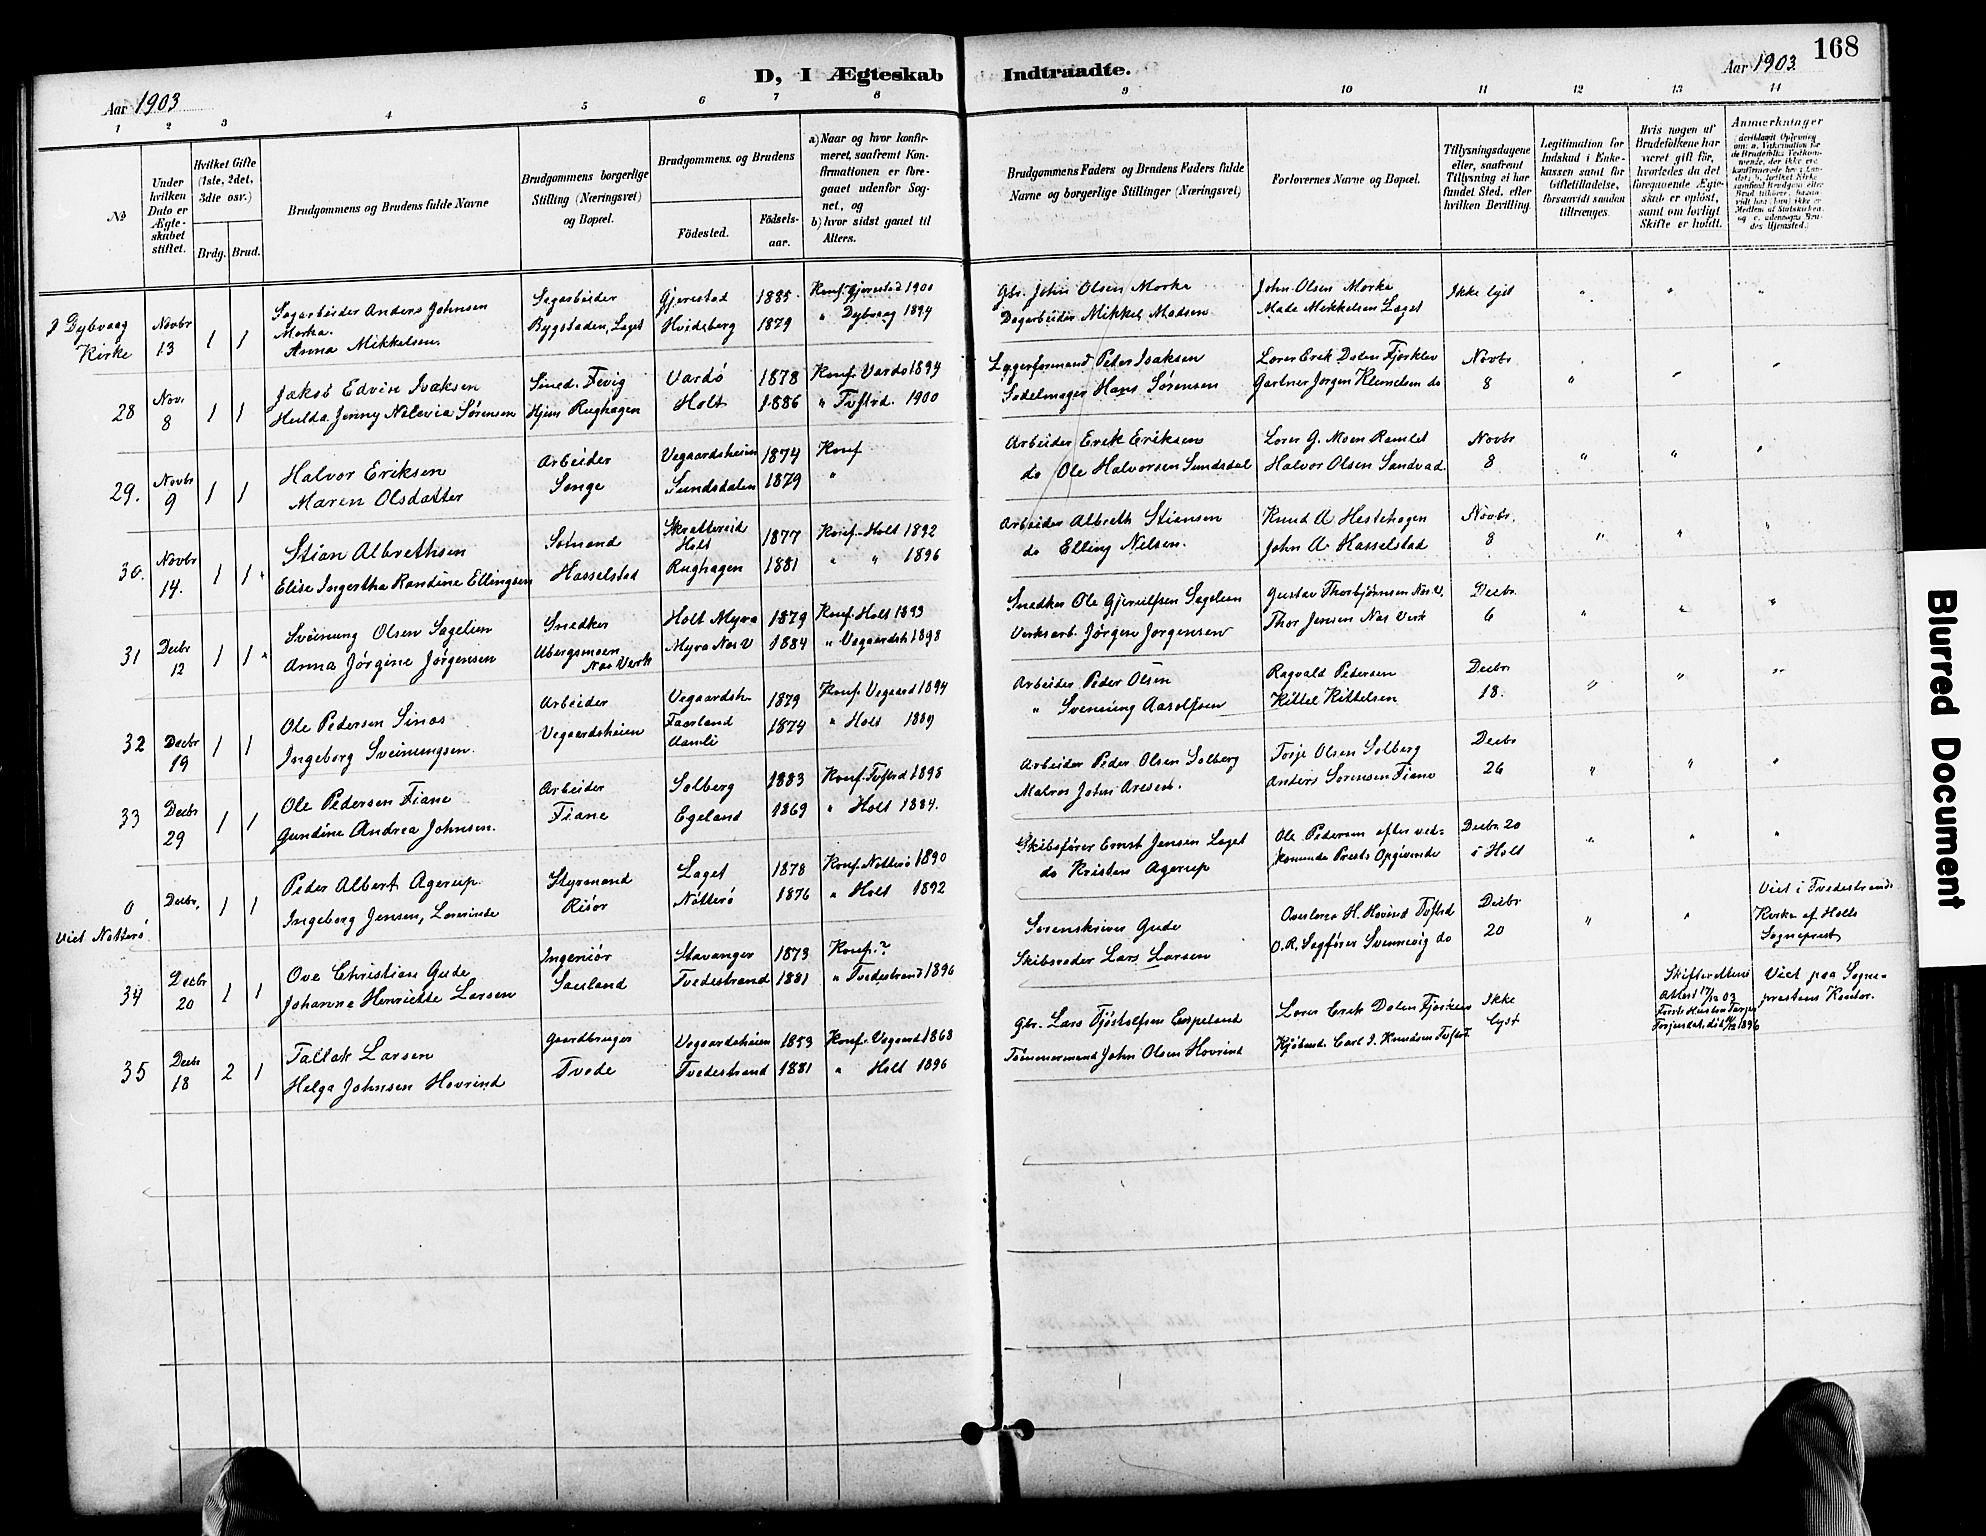 168
D, I Ægteskab Indtraadte.
Aar 1903
Aar 1903.
1 2 3 4 5 6 7 8 9 10 11 12 13 14
No
Under hvilken Dato er Ægteskabet stiftet.
Hvilket Gifte (1ste, 2det, 3die osv.)
Brdg. Brud.
Brudgommens og Brudens fulde Navne
Brudgommens borgerlige Stilling (Næringsvei) og Bopæl.
Brudgommens og Brudens
Födested.
Födselsaar.
a) Naar og hvor konfirmeret, saafremt Konfirmationen er foregaaet udenfor Sognet, og
b) hvor sidst gaaet til Alters.
Brudgommens Faders og Brudens Faders fulde Navne og borgerlige Stillinger (Næringsvei)
Forlovernes Navne og Bopæl.
Tillysningsdagene eller, saafremt Tillysning ei har fundet Sted, efter hvilken Bevilling
Legitimation for Indskud i Enkekassen samt for Giftetilladelse, forsaavidt saadan tiltrænges.
Hvis nogen af Brudefolkene har været gift før, hvorledes da det foregaaende Ægteskab er opløst, samt om lovligt Skifte er holdt.
Anmærkninger
I Dybvaag Kirke Novbr 13 1 1
Sagarbeider Anders Johnsen Morka.
Anna Mikkelsen.
Sagarbeider
Bygstaden, Laget
Gjerestad 1885 Konf. Gjerestad 1900
Hvideberg 1879 " Dybvaag 1894
Gbr. John Olsen Morka
Dagarbeider Mikkel Madsen
John Olsen Morka
Mads Mikkelsen Laget
Ikke lyst " " "
28 Nov. 8 1 1
Jakob Edvin Isaksen
Hulda Jenny Nolavia Sørensen
Smed. Fevig
Hjem Rughagen
Vardö 1878 Konf. Vardö 1894
Holt 1886 " Tvstrd. 1900
Lagerformand Peter Isaksen
Sadelmager Hans Sørensen
Lærer Erik Dalen Fjorklev
Gartner Jørgen Klemetsen do
Novbr 8 " " "
29. Novbr 9 1 1
Halvor Eriksen
Maren Olsdatter
Arbeider
Songe
Vegaardsheien 1874 Konf
Sundsdalen 1879 "
Arbeider Erik Eriksen
do Ole Halvorsen Sundsdal
Lærer G. Moen Ramlet
Halvor Olsen Sandvad
Novbr 8 " " "
30. Novbr 14. 1 1
Stian Albrethsen
Elise Ingertha Randine Ellingsen
Sømand
Hasselstad
Skrattereid Holt 1877 Konf. Holt 1892
Rughagen 1881 " " 1896
Arbeider Albreth Stiansen
do Elling Nilsen.
Knud A Hestehagen
John A. Hasselstad
Novbr. 8 " " "
31 Decbr 12 1 1
Sveinung Olsen Sagelien
Anna Jørgine Jørgensen
Snedker
Ubergsmoen
Næs Verk
Holt Myra 1879 Konf. Holt 1893
Myra Næs V 1884 " Vegaardsh 1898
Snedker Ole Gjerulfsen Sagelien
Verksarb. Jørgen Jørgensen
Gustav Thorbjørnsen Næs V.
Thor Jensen Næs Verk
Decbr. 6 " " "
32 Decbr 19 1 1
Ole Pedersen Sines
Ingeborg Sveinungsen.
Arbeider
Vegaardsheien
Vegaardsh. 1879 Konf. Vegaard 1894
Faarland Aamli 1874 " Holt 1889
Arbeider Peder Olsen
" Svenning Aasolfsen
Ragvald Pedersen
Kittel Kittelsen
Decbr 18. " " "
33 Decbr 29 1 1
Ole Pedersen Fiane
Gundine Andrea Johnsen.
Arbeider
Fiane
Solberg 1883 Konf. Tvstrd 1898
Egeland 1869 " Holt 1884.
Arbeider Peder Olsen Solberg
Matros John Aresen.
Torje Olsen Solberg
Anders Sørensen Fiane
Decbr 26 " " "
0 Viet Nøtterö Decbr, 1 1
Peder Albert Agerup.
Ingeborg Jensen, Lærerinde
Styrmand
Risør
Laget 1878 Konf. Nøtterö 1890
Nötterö 1876 " Holt 1892
Skibsfører Ernst Jensen Laget
do Kristen Agerup
Ole Pedersen efter vedkomende Prests Opgivende
Decbr. 20 i Holt " " "
34 Decbr 20 1 1
Ove Christian Gude
Johanne Henriette Larsen
Ingeniør
Sauland
Stavanger 1873 Konf. ?
Tvedestrand 1881 " Tvedestrand 1896
Sorenskriver Gude
Skibsreder Lars Larsen
Overlærer H. Hovind Tvstrd
O.R. Sagfører Svennevig do
Decbr 20 " "
Viet i Tvedestrands Kirke af Holts Sogneprest
35 Decbr 18 2 1
Tallak Larsen
Helga Johnsen Hovrind
Gaardbruger
Tvede
Vegaardsheien 1853 Konf. Vegaard 1868
Tvedestrand 1881 " Holt 1896
Gbr. Lars Tjøstolfsen Espeland
Tømmermand John Olsen Hovrind
Lærer Erik Dalen Fjorklev
Kjøbmd. Carl J. Knudsen Tvstr.
Ikke lyst
Skifterettens Attest 17/12 03
Viet paa Sogneprestens Kontor.
Blurred Document